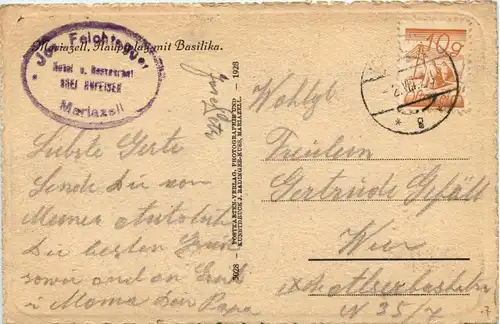 Mariazell, Hauptplatz mit Basilika.
Jos. Feichtegger
Hotel u. Restaurant
DREI HUFEISEN
Mariazell
Liebste Gerte
Sende Dir von
Meiner Autofahrt
Die besten Grüße
sowie und an Erich
u Mama Dein Papa
3028 — POSTKARTEN-VERLAG, PHOTOGRAPHIE UND
KUNSTDRUCK J. KUSS, MARIAZELL. — 1928
10g
Wohlgb
Fräulein
Gertrude
Wien
N 35/7